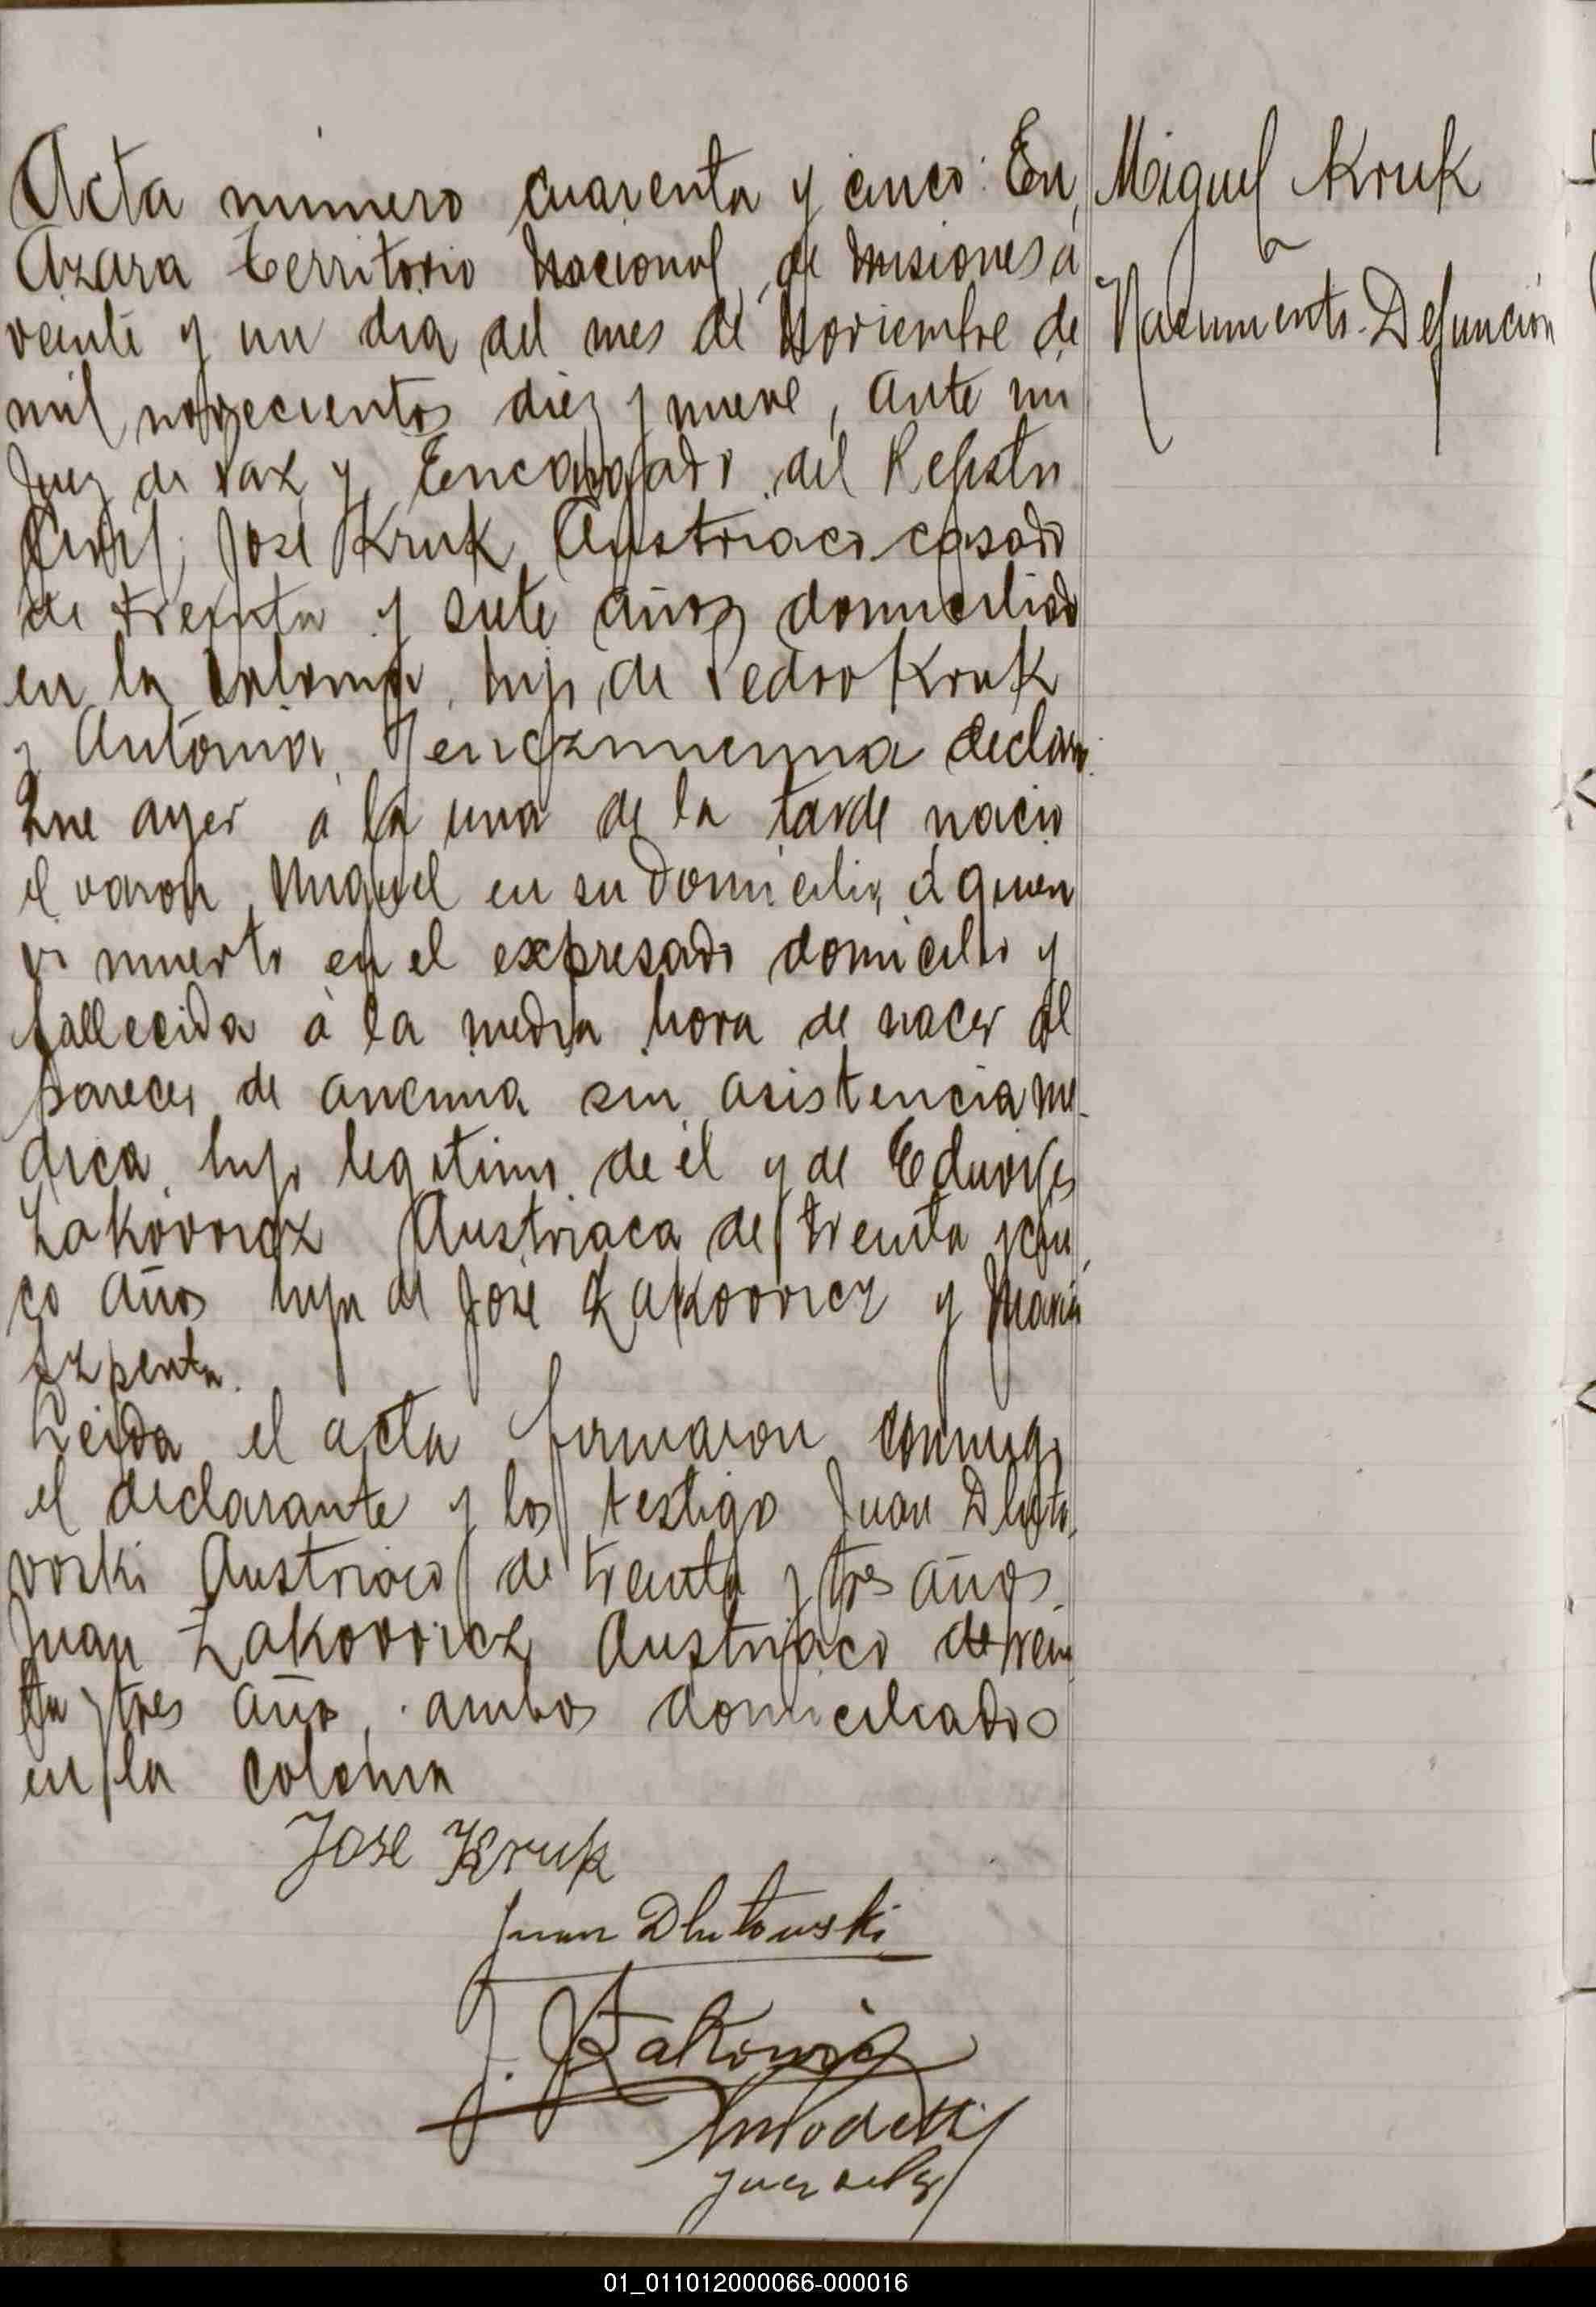 Acta numero cuarenta y cinco: En
Azara territorio Nacional de Misiones á
veinte y un dia del mes de Noviembre de
mil novecientos diez y nueve, ante mi
Juez de Paz y Encargado del Registro
Civil, José Kruk Austriaco casado
de treinta y siete años domiciliado
en la colonia, hijo de Pedro Kruk
y Antonia declara
Que ayer á la una de la tarde nacio
el varon Miguel en su domicilio, á quien
vi muerto en el expresado domicilio y
fallecida á la media hora de nacer al
parecer de anemia sin asistencia me-
dica, hijo legitimo de él y de Eduviges
Zakovvicz Austriaca de treinta y cin
co años hija de José Zakovvicz y Maria
Leida el acta firmaron conmigo
el declarante y los testigo Juan Dluto
voski Austriaco de treinta y tres años.
Juan Zakovvicz Austriaco de trein
ta y tres año, ambos domiciliados
en la colonia
Jose Kruk
Juan Dlutowski
J. Zakowicz
Juez de Paz
Miguel Kruk
Nacimiento-Defunción
01_011012000066-000016